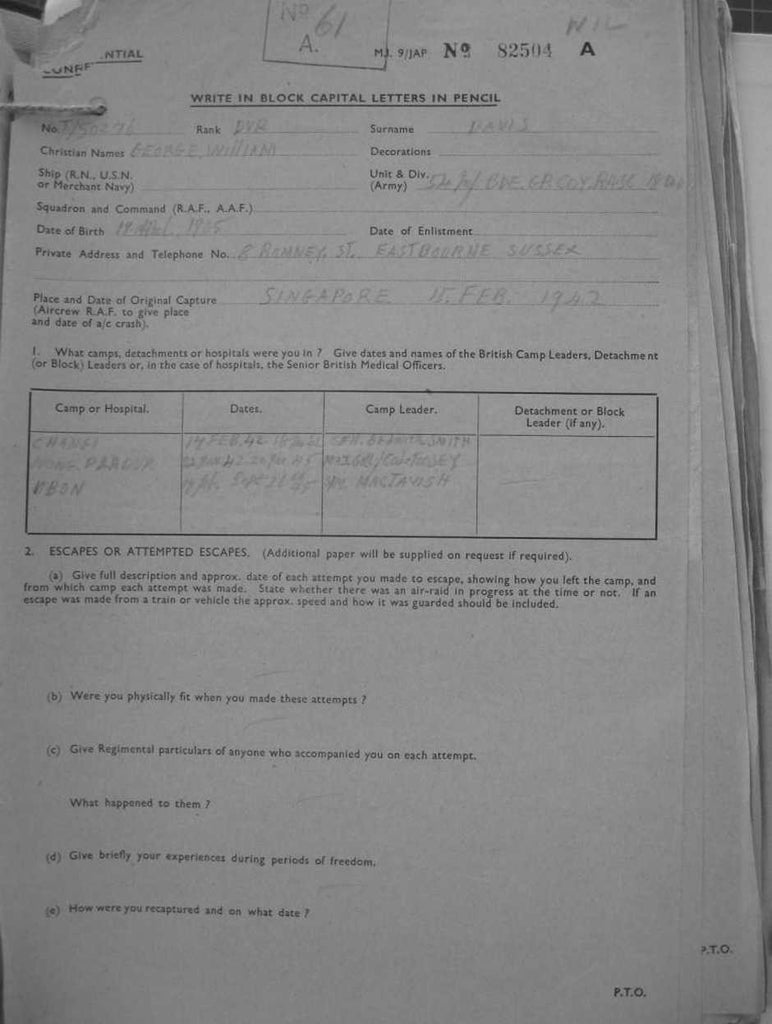 Nº 61
A.
M.I. 9/JAP Nº 82504 A
WRITE IN BLOCK CAPITAL LETTERS IN PENCIL
No. T/150276 Rank DVR Surname DAVIS
Christian Names GEORGE WILLIAM Decorations
Ship (R.N., U.S.N. or Merchant Navy) Unit & Div. (Army) 54 BDE GR COY RASC 18 Div
Squadron and Command (R.A.F., A.A.F.)
Date of Birth 1915 Date of Enlistment
Private Address and Telephone No. 8 ROMNEY. ST. EASTBOURNE SUSSEX
Place and Date of Original Capture SINGAPORE 15. FEB. 1942
(Aircrew R.A.F. to give place
and date of a/c crash).
1. What camps, detachments or hospitals were you in ? Give dates and names of the British Camp Leaders, Detachment
(or Block) Leaders or, in the case of hospitals, the Senior British Medical Officers.
Camp or Hospital. Dates. Camp Leader. Detachment or Block Leader (if any).
CHANGI 14 FEB. 42 SMITH
NONG PLADUK
UBON SEPT MACTAVISH
2. ESCAPES OR ATTEMPTED ESCAPES. (Additional paper will be supplied on request if required).
(a) Give full description and approx. date of each attempt you made to escape, showing how you left the camp, and
from which camp each attempt was made. State whether there was an air-raid in progress at the time or not. If an
escape was made from a train or vehicle the approx. speed and how it was guarded should be included.
(b) Were you physically fit when you made these attempts ?
(c) Give Regimental particulars of anyone who accompanied you on each attempt.
What happened to them ?
(d) Give briefly your experiences during periods of freedom.
(e) How were you recaptured and on what date ?
P.T.O.
P.T.O.